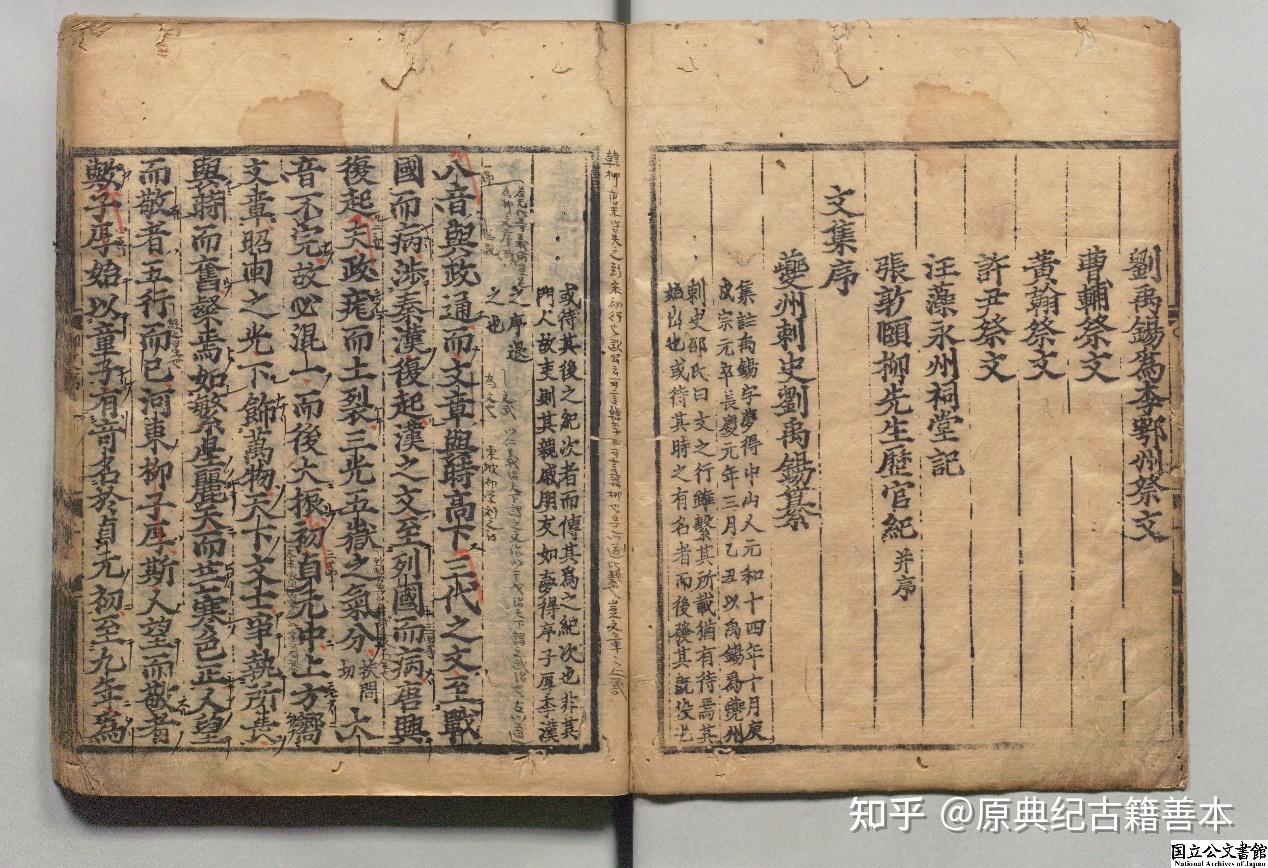 劉禹錫爲李鄂州祭文
曹輔祭文
黃翰祭文
許尹祭文
汪藻永州祠堂記
張敦頤柳先生歷官紀并序
文集序
夔州刺史劉禹錫纂
集註禹錫字夢得中山人元和十四年十月庚
戌宗元卒長慶元年三月乙丑以禹錫爲夔州
刺史邵氏曰文之行雖繫其所載猶有待焉其
始出也或待其時之有名者而後發其旣没也
或待其後之紀次者而傳其爲之紀次也非其
門人故吏則其親戚朋友如夢得序子厚李漢
之序退
之也
八音與政通而文章與時高下三代之文至戰
國而病涉秦漢復起漢之文至列國而病唐興
復起夫政厖而土裂三光五嶽之氣分扶問切大
音不完故必混一而後大振初貞元中上方嚮
文章昭回之光下飾萬物天下文士爭執所長
與時而奮粲焉如繁星麗天而芒寒色正人望
而敬者五行而已河東柳子厚斯人望而敬者
歟子厚始以童子有奇名於貞元初至九年爲
知乎 @原典纪古籍善本
国立公文書館
National Archives of Japan